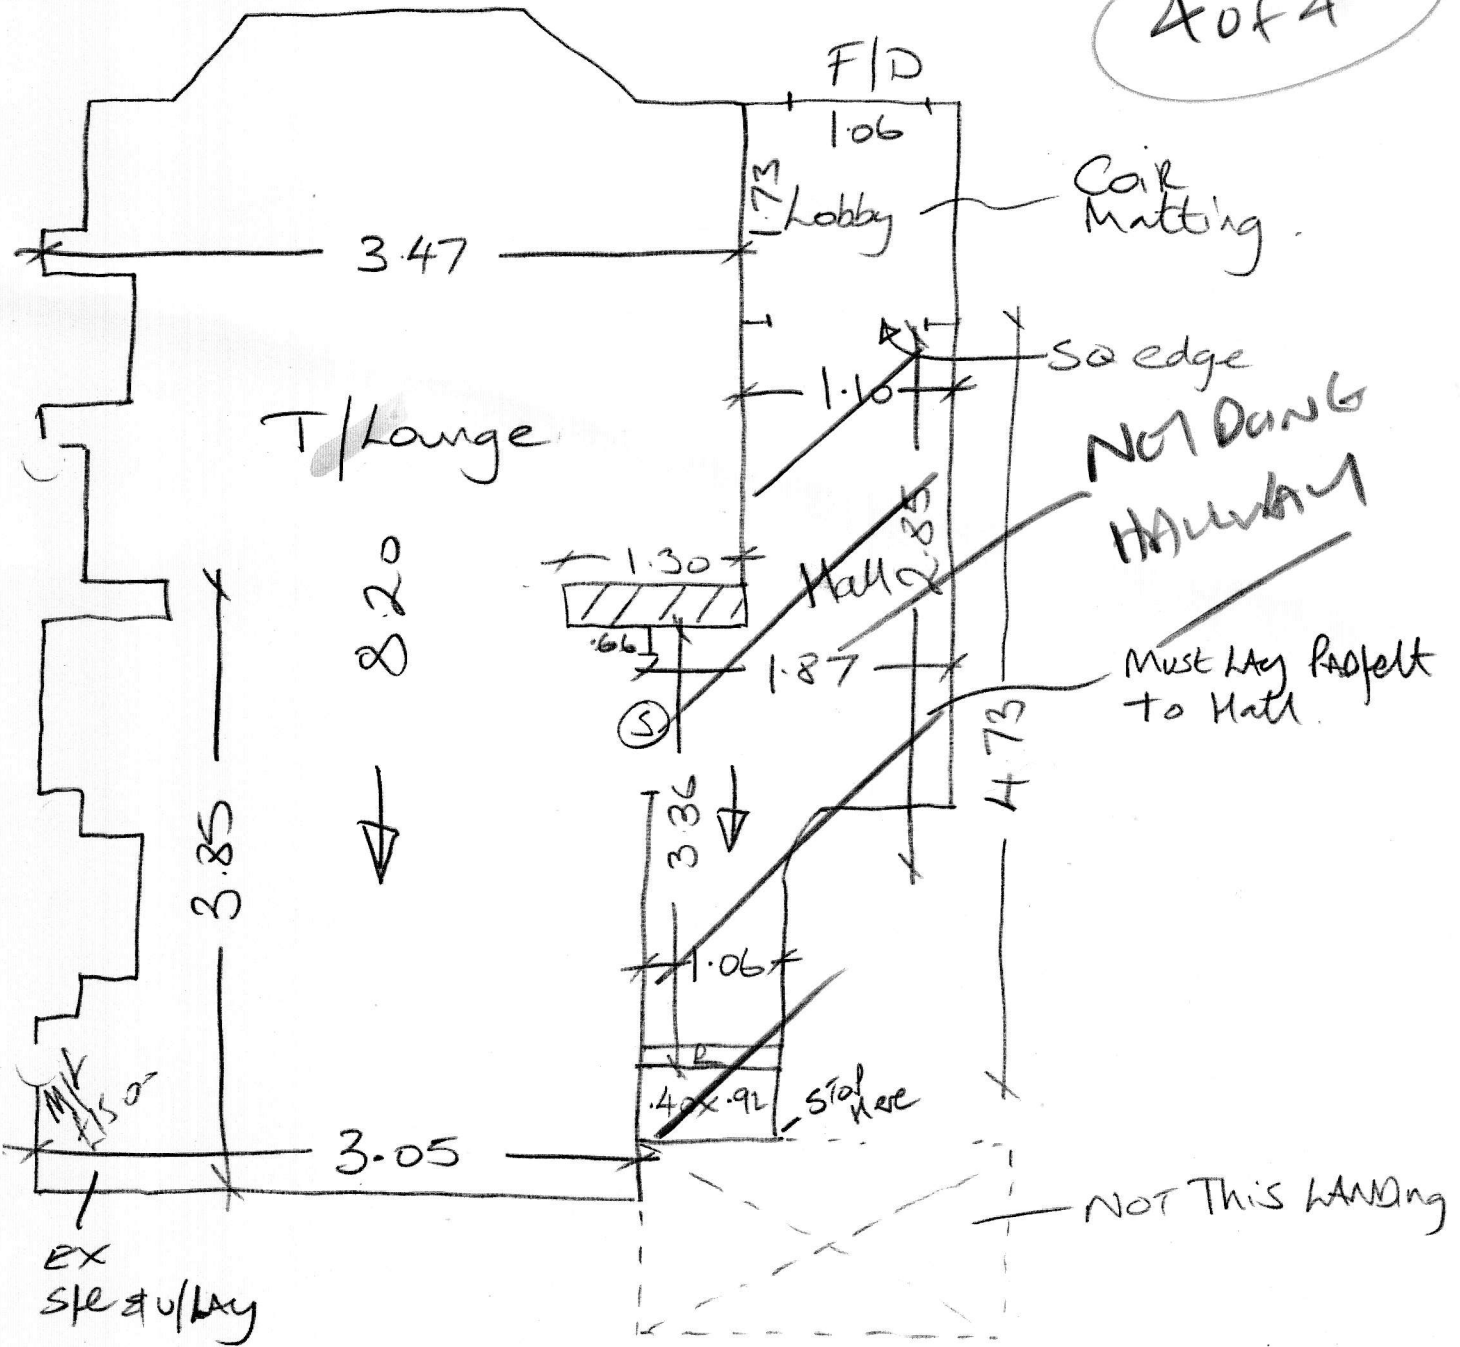 4 of 4
F/D
1.06
1.73
Lobby
Coir
Matting.
3.47
SQ edge
1.10
T/Lounge
NOT DOING
HALLWAY
8.20
1.30
Hall
2.85
.66
1.87
Must LAY PADfelt
to Hall.
S
4.73
3.36
3.85
1.06
.40x.92
STOP
Here
3.05
NOT THis LANDing
EX
S/e & u/LAY